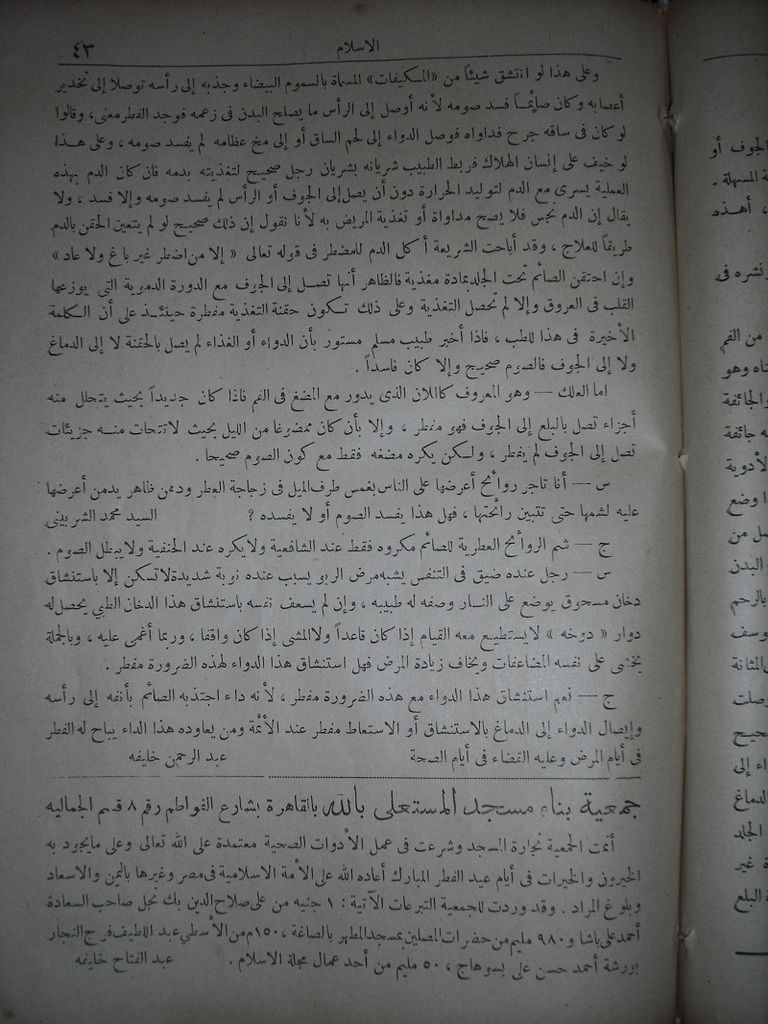 الاسلام ٤٣
وعلى هذا لو انتشق شيئاً من «المسكيفات» المسماة بالسموم البيضاء وجذبه إلى رأسه توصلا إلى تخدير
أعصابه وكان صائماً فسد صومه لأنه أوصل إلى الرأس ما يصلح البدن فى زعمه فوجد الفطر معنى، وقالوا
لو كان فى ساقه جرح فداواه فوصل الدواء إلى لحم الساق أو إلى مخ عظامه لم يفسد صومه ، وعلى هذا
لو خيف على إنسان الهلاك فربط الطبيب شريانه بشريان رجل صحيح لتغذيته بدمه فان كان الدم بهذه
العملية يسرى مع الدم لتوليد الحرارة دون أن يصل إلى الجوف أو الرأس لم يفسد صومه وإلا فسد ، ولا
يقال إن الدم نجس فلا يصح مداواة أو تغذية المريض به لأنا نقول إن ذلك صحيح لو لم يتعين الحقن بالدم
طريقاً للعلاج ، وقد أباحت الشريعة أكل الدم للمضطر فى قوله تعالى « إلا من اضطر غير باغ ولا عاد »
وإن احتقن الصائم تحت الجلد بمادة مغذية فالظاهر أنها تصل إلى الجوف مع الدورة الدموية التى يوزعها
القلب فى العروق وإلا لم تحصل التغذية وعلى ذلك تكون حقنة التغذية مفطرة حينئذ على أن الكلمة
الأخيرة فى هذا للطب ، فاذا أخبر طبيب مسلم مستور بأن الدواء أو الغذاء لم يصل بالحقنة لا إلى الدماغ
ولا إلى الجوف فالصوم صحيح وإلا كان فاسداً .
اما العلك — وهو المعروف كاللان الذى يدور مع المضغ فى الفم فاذا كان جديداً بحيث يتحلل منه
أجزاء تصل بالبلع إلى الجوف فهو مفطر ، وإلا بأن كان ممضوغا من الليل بحيث لا تتحات منه جزيئات
تصل إلى الجوف لم يفطر ، ولكن يكره مضغه فقط مع كون الصوم صحيحا .
س — أنا تاجر روائح أعرضها على الناس بغمس طرف الميل فى زجاجة العطر ودهن ظاهر يد من أعرضها
عليه لشمها حتى تتبين رائحتها ، فهل هذا يفسد الصوم أو لا يفسده ؟ السيد محمد الشربينى
ج — شم الروائح العطرية للصائم مكروه فقط عند الشافعية ولا يكره عند الحنفية ولا يبطل الصوم .
س — رجل عنده ضيق فى التنفس يشبه مرض الربو يسبب عنده نوبة شديدة لا تسكن إلا باستنشاق
دخان مسحوق يوضع على النار وصفه له طبيبه ، وإن لم يسعف نفسه باستنشاق هذا الدخان الطبي يحصل له
دوار « دوخه » لا يستطيع معه القيام إذا كان قاعداً ولا المشى إذا كان واقفا ، وربما أغمى عليه ، وبالجملة
يخشى على نفسه المضاعفات ويخاف زيادة المرض فهل استنشاق هذا الدواء لهذه الضرورة مفطر .
ج — نعم استنشاق هذا الدواء مع هذه الضرورة مفطر ، لأنه داء اجتذبه الصائم بأنفه إلى رأسه
وإيصال الدواء إلى الدماغ بالاستنشاق أو الاستعاط مفطر عند الأئمة ومن يعاوده هذا الداء يباح له الفطر
فى أيام المرض وعليه القضاء فى أيام الصحة عبد الرحمن خليفه
جمعية بناء مسجد المستعلى بالله بالقاهرة بشارع الفواطم رقم ٨ قسم الجماليه
أتمت الجمعية نجارة المسجد وشرعت فى عمل الأدوات الصحية معتمدة على الله تعالى وعلى ما يجود به
الخيرون والخيرات فى أيام عيد الفطر المبارك أعاده الله على الأمة الاسلامية فى مصر وغيرها باليمن والاسعاد
وبلوغ المراد . وقد وردت للجمعية التبرعات الآتية : ١ جنيه من على صلاح الدين بك نجل صاحب السعادة
أحمد على باشا و ٩٨٠ مليم من حضرات المصلين بمسجد المطهر بالصاغة ، ١٥٠ م من الأسطى عبد اللطيف فرج النجار
بورشة أحمد حسن على بسوهاج ، ٥٠ مليم من أحد عمال مجلة الاسلام . عبد الفتاح خليفه